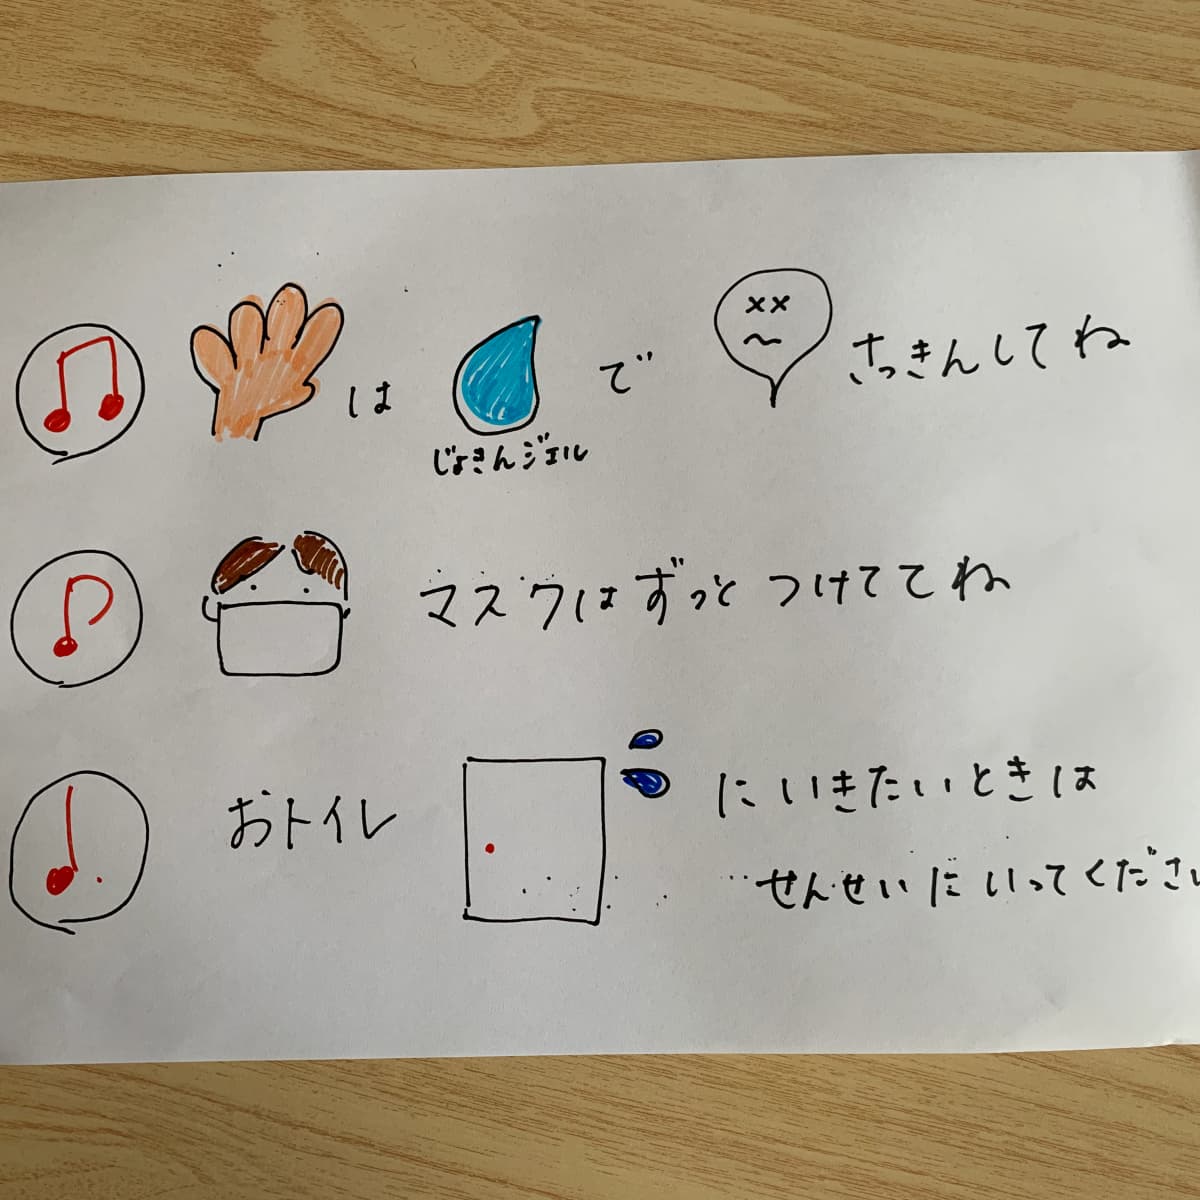 は で さっきんしてね
じょきんジェル
マスクはずっとつけててね
おトイレ にいきたいときは
せんせいにいってください